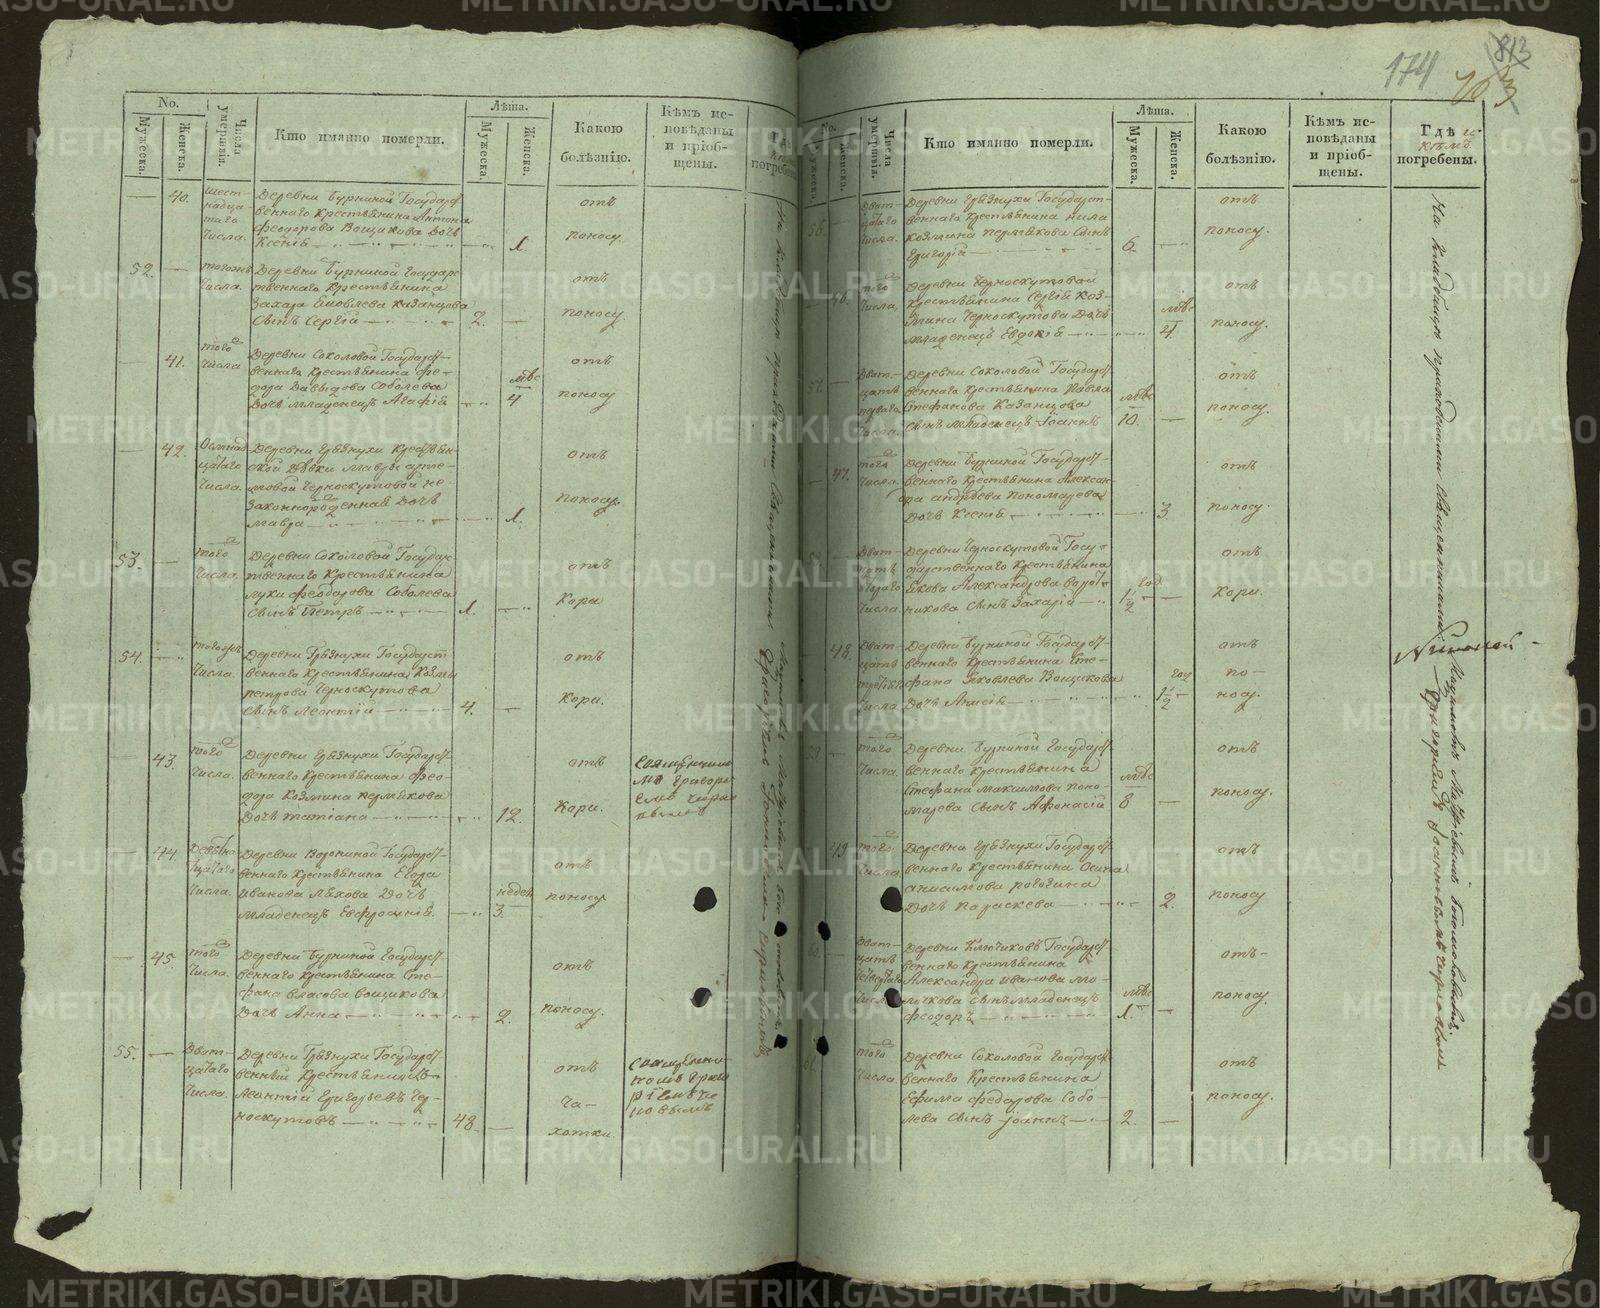 174
813
203
No.
Мужеска.
Женска.
Числа умершвія.
Кто иманно померли.
Лѣта.
Мужеска.
Женска.
Какою болѣзнію.
Кѣмъ исповѣданы и пріобщены.
погребены.
40.
шестнадцатаго Числа.
Деревни Бурниной Государст-
веннаго Крестьянина Антона
Феодорова Вощикова Дочь
Ксенія
1.
отъ
поносу.
52.
тогожъ Числа.
Деревни Бурниной Государс
твеннаго Крестьянина
Захара Яковлева Казанцова
Сынъ Сергій
2.
отъ
поносу.
41.
того Числа
Деревни Соколовой Государст-
веннаго Крестьянина Фе-
дора Давыдова Соболева
Дочь младенецъ Агафія
мѣс
4
отъ
поносу
42.
Осмнадцатаго Числа.
Деревни Грязнухи Крестьян-
ской Дѣвки Мавры Арте-
мовой Черноскутовой не-
законнорожденная Дочь
Мавра
1.
отъ
поносу.
53.
того Числа.
Деревни Соколовой Государс
твеннаго Крестьянина
Луки Феодорова Соболева
Сынъ Петръ
1.
отъ
Кори
54.
тогожъ Числа.
Деревни Грязнухи Государст
веннаго Крестьянина Козмы
Петрова Черноскутова
Сынъ Леонтій
4.
отъ
Кори.
43.
того Числа.
Деревни Грязнухи Государст-
веннаго Крестьянина Фео-
дора Козмина Пермякова
Дочь Татіана
12.
отъ
Кори.
44.
Девятнадцатаго Числа.
Деревни Ворониной Государст-
веннаго Крестьянина Егора
Иванова Ляхова Дочь
младенецъ Евфросинія.
недел
3.
отъ
поносу
45.
того Числа.
Деревни Бурниной Государст-
веннаго Крестьянина Сте-
фана Власова Вощикова
Дочь Анна
2.
отъ
поносу.
55.
Дватцатаго Числа.
Деревни Грязнухи Государст-
венный Крестьянинъ
Леонтій Григорьевъ Чер-
носкутовъ
48.
отъ
ча-
хотки.
No.
Женска.
Числа умершвія.
Кто иманно померли.
Лѣта.
Мужеска.
Женска.
Какою болѣзнію.
Кѣмъ исповѣданы и пріобщены.
Гдѣ и кѣмъ погребены.
56.
Дватцатаго Числа.
Деревни Грязнухи Государст-
веннаго Крестьянина Нила
Козмина Пермякова Сынъ
Григорій
6.
отъ
поносу.
46.
того Числа.
Деревни Черноскутовой
Крестьянина Сергія Коз-
мина Черноскутова Дочь
младенецъ Евдокія
мѣс
4
отъ
поносу.
57.
Дватцать перваго Числа.
Деревни Соколовой Государст-
веннаго Крестьянина Павла
Стефанова Казанцова
Сынъ младенецъ Іоаннъ
мѣс
10.
отъ
поносу.
47.
того Числа.
Деревни Бурниной Государст-
веннаго Крестьянина Алексан-
дра Андрѣева Пономарева
Дочь Ксенія
3.
отъ
поносу.
Дватцать втораго Числа.
Деревни Черноскутовой Госу-
дарственнаго Крестьянина
Якова Александрова Ворот-
никова Сынъ Захарій
год
1½
отъ
Кори.
48.
Дватцать третіяго Числа.
Деревни Бурниной Государст-
веннаго Крестьянина Сте-
фана Яковлева Вощикова
Дочь Анисія
год
1½
отъ
по-
носу.
59.
того Числа.
Деревни Бурниной Государст-
веннаго Крестьянина
Стефана Максимова Поно-
марева Сынъ Афонасій
мѣс
8
отъ
поносу.
49.
того Числа.
Деревни Грязнухи Государст-
веннаго Крестьянина Осипа
Анисимова Рогозина
Дочь Параскева
2.
отъ
поносу
60.
Дватцать четвертаго Числа
Деревни Ключиковъ Государст-
веннаго Крестьянина
Александра Иванова
Сынъ младенецъ
Феодоръ
мѣс
1.
отъ
поносу.
61.
того Числа.
Деревни Соколовой Государст-
веннаго Крестьянина
Ефима Федорова Собо-
лева Сынъ Іоаннъ
2.
отъ
поносу.
На кладбище приходскими священниками
METRIKI.GASO-URAL.RU